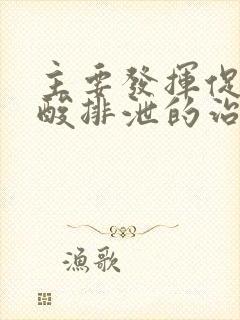 主要發揮促
酸排泄的治
漁歌